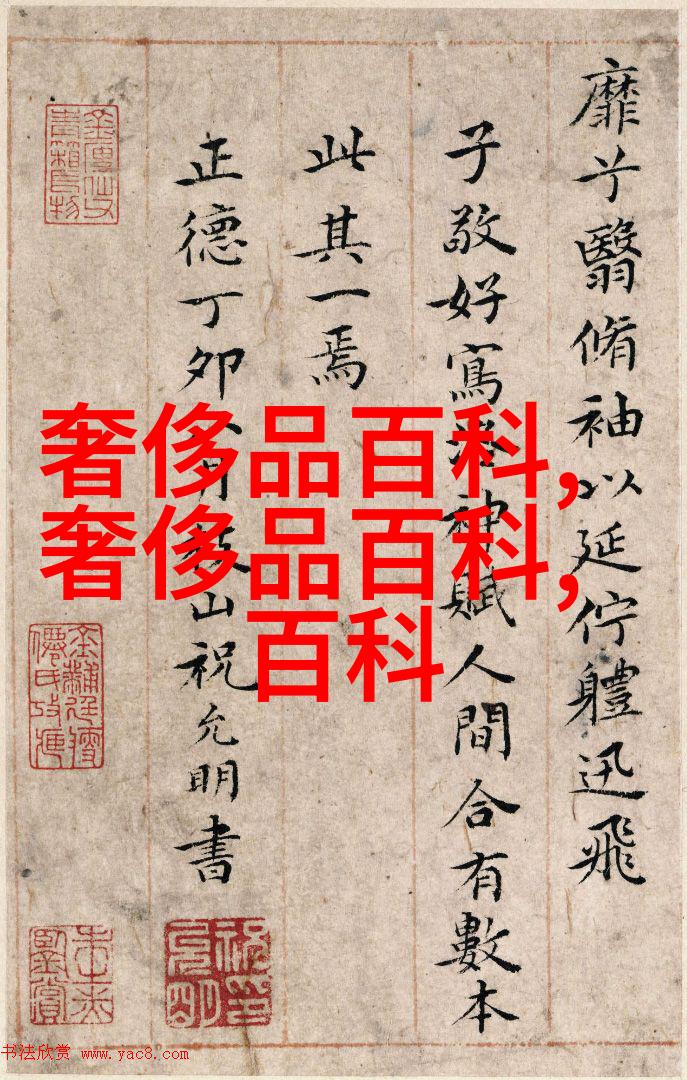 靡兮翳脩袖以延佇體迅飛
子敬好寫洛神賦人間合有數本
此其一焉
正德丁卯八月枝山祝允明書
奢侈品百科,
奢侈品百科,
百科
书法欣赏 www.yac8.com